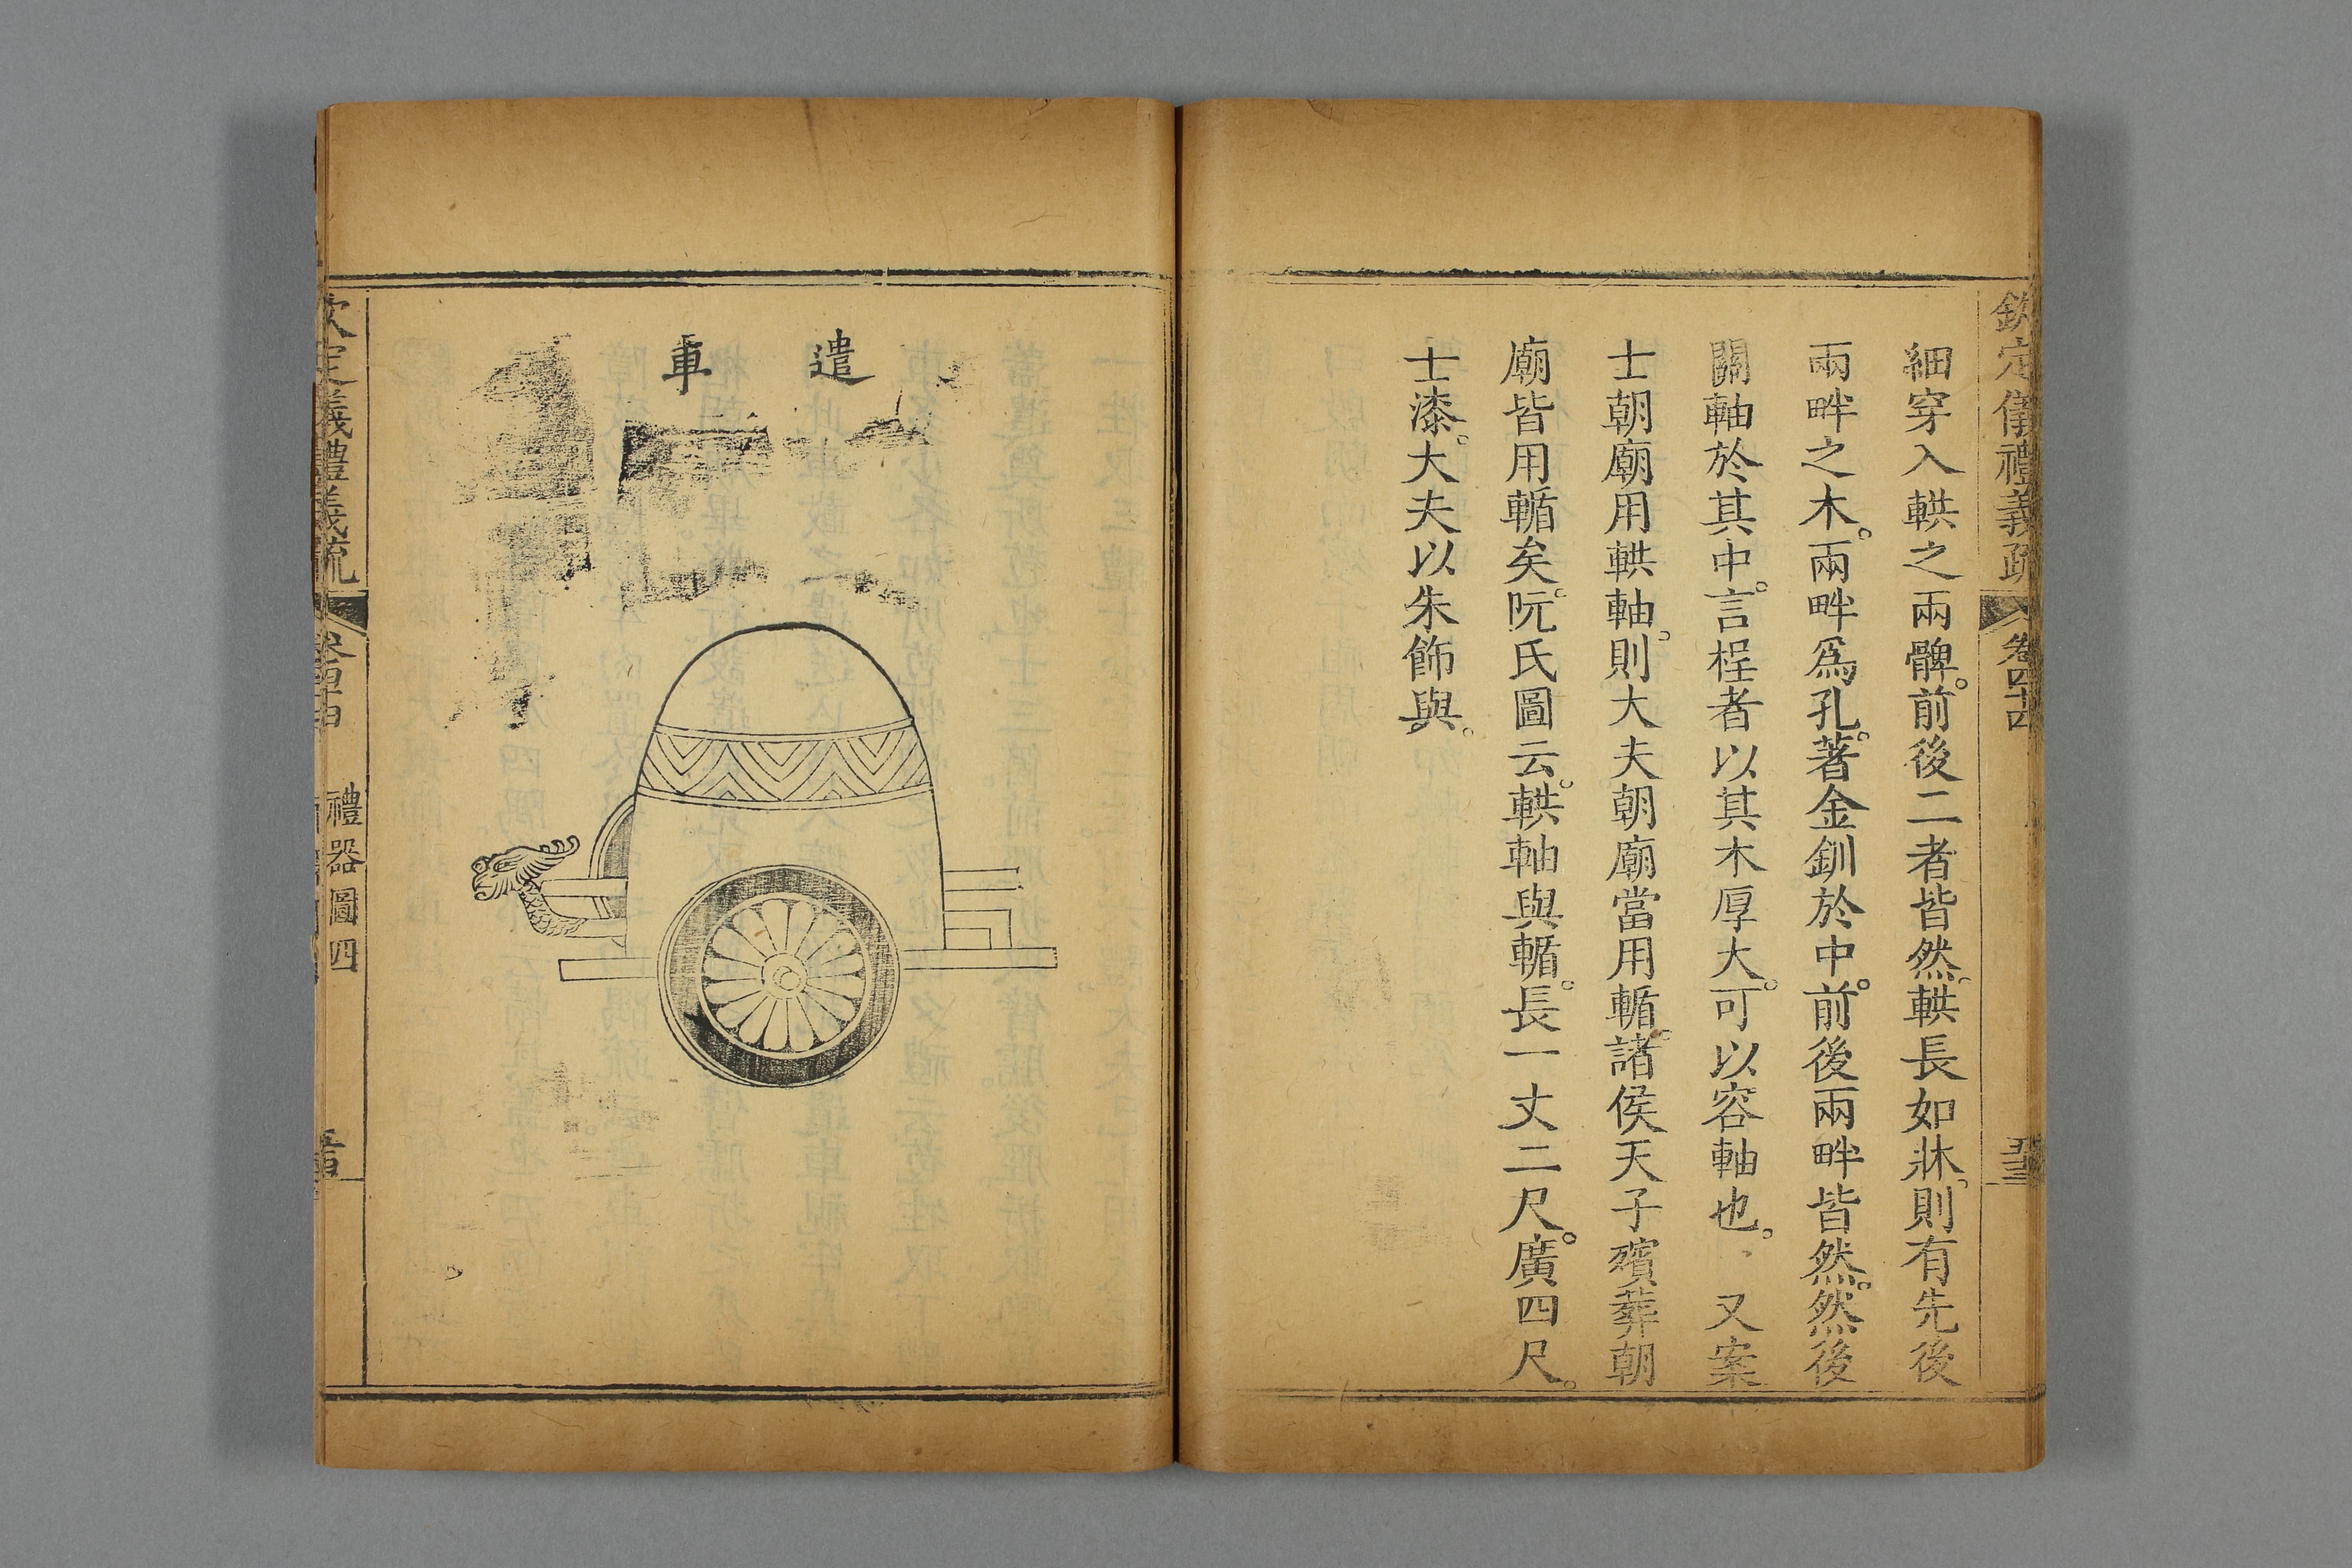 欽定儀禮義疏 卷四十四
細穿入輁之兩髀。前後二者皆然。輁長如牀。則有先後
兩畔之木。兩畔爲孔。著金釧於中。前後兩畔皆然。然後
關軸於其中。言桯者以其木厚大。可以容軸也。 又案
士朝廟用輁軸。則大夫朝廟當用輴。諸侯天子殯葬朝
廟皆用輴矣。阮氏圖云。輁軸與輴。長一丈二尺。廣四尺。
士漆。大夫以朱飾與。
遣車
禮器圖四